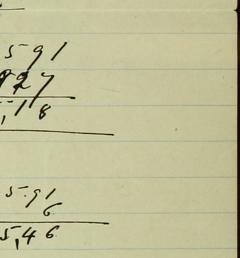 591
927
5,18
5.91
6
5,46